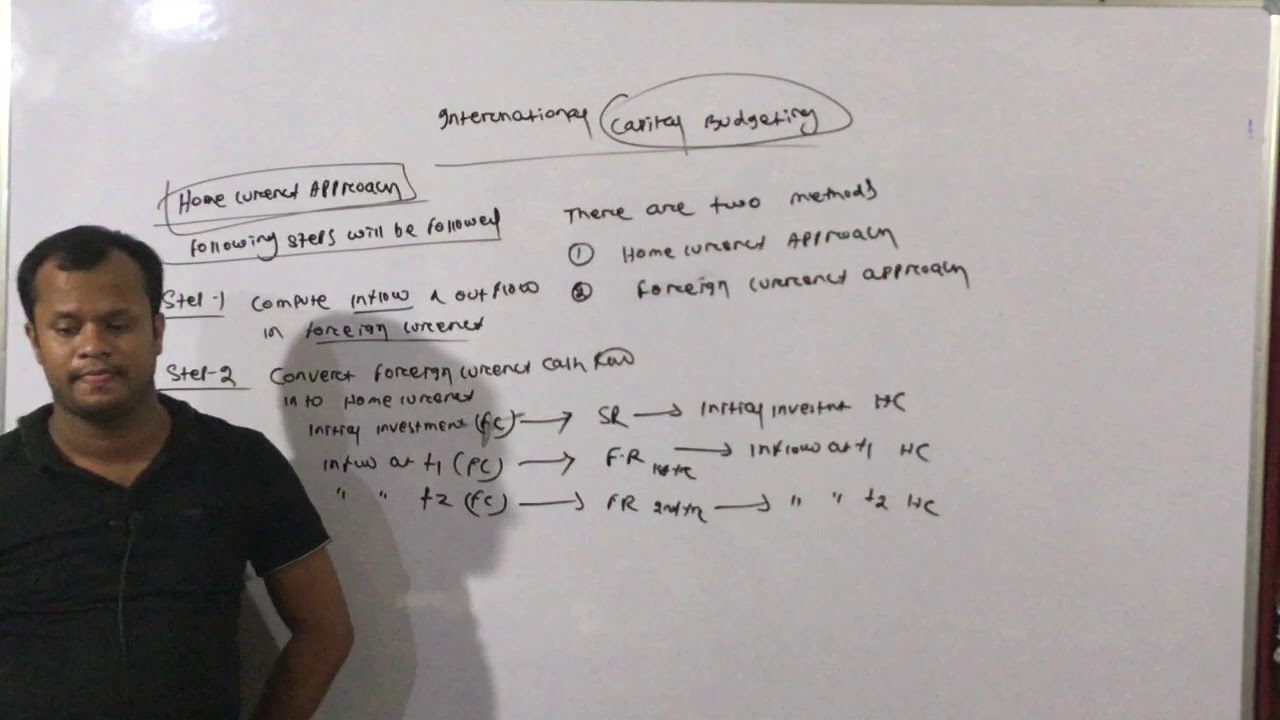 International Capital Budgeting
Home Currency Approach
following steps will be followed
Step-1 Compute inflow & outflow
in foreign currency
Step-2 Convert foreign currency cash flow
in to Home currency
Initial investment (FC) → SR → Initial investment HC
Inflow at t1 (FC) → F.R 1st yr → Inflow at t1 HC
" " t2 (FC) → FR 2nd yr → " " t2 HC
There are two methods
① Home currency Approach
② Foreign currency approach